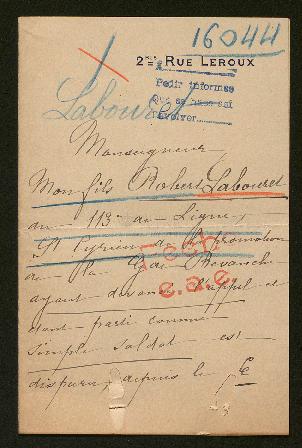 16044
2bis RUE LEROUX
Pedir informes
Que se
devolver
Labouret
Monseigneur,
Mon fils Robert Labouret
du 113me de Ligne,
St Cyrien de la promotion
de la Gde Revanche
ayant devancé l'appel et
étant parti comme
simple soldat est
disparu, depuis le